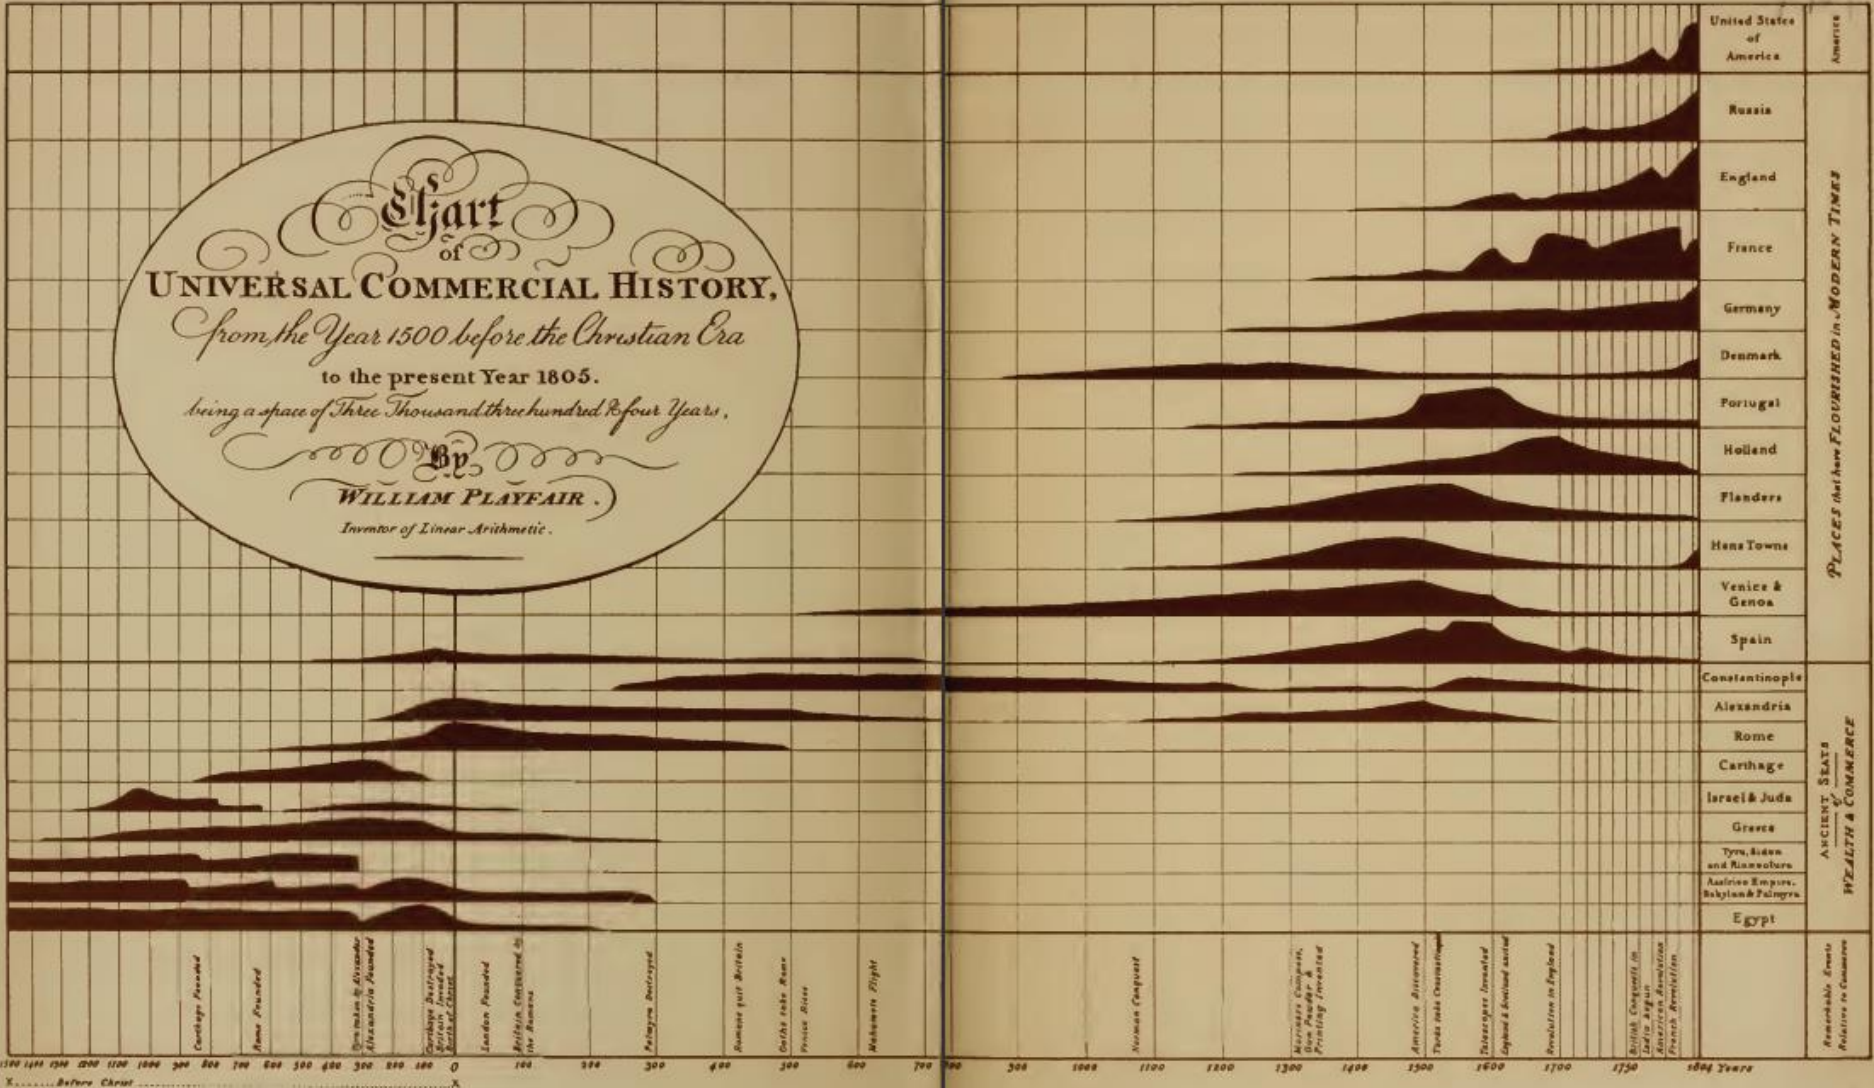 Chart
of
UNIVERSAL COMMERCIAL HISTORY,
from the Year 1500 before the Christian Era
to the present Year 1805.
being a space of Three Thousand three hundred & four Years,
By
WILLIAM PLAYFAIR.
Inventor of Linear Arithmetic.
United States
of
America
America
Russia
England
France
Germany
Denmark
Portugal
Holland
Flanders
Hans Towns
Venice &
Genoa
Spain
PLACES that have FLOURISHED in MODERN TIMES
Constantinople
Alexandria
Rome
Carthage
Israel & Juda
Greece
Tyre, Sidon
and
Egypt
ANCIENT SEATS
of
WEALTH & COMMERCE
Carthage Founded
Rome Founded
Tyre taken by Alexander
Alexandria Founded
Carthage Destroyed
Britain Invaded
Birth of Christ
London Founded
Britain Conquered by
the Romans
Palmyra Destroyed
Romans quit Britain
Goths take Rome
Venice Rises
Mahomets Flight
Norman Conquest
Mariners Compass,
Gun Powder &
Printing Invented
America Discovered
Turks take Constantinople
Telescopes Invented
England & Scotland united
Revolution in England
British Conquests in
India begun
American Revolution
French Revolution
Remarkable Events
Relative to Commerce
1500 1400 1300 1200 1100 1000 900 800 700 600 500 400 300 200 100 0 100 200 300 400 500 600 700 900 1000 1100 1200 1300 1400 1500 1600 1700 1750 1804 Years
X Before Christ X